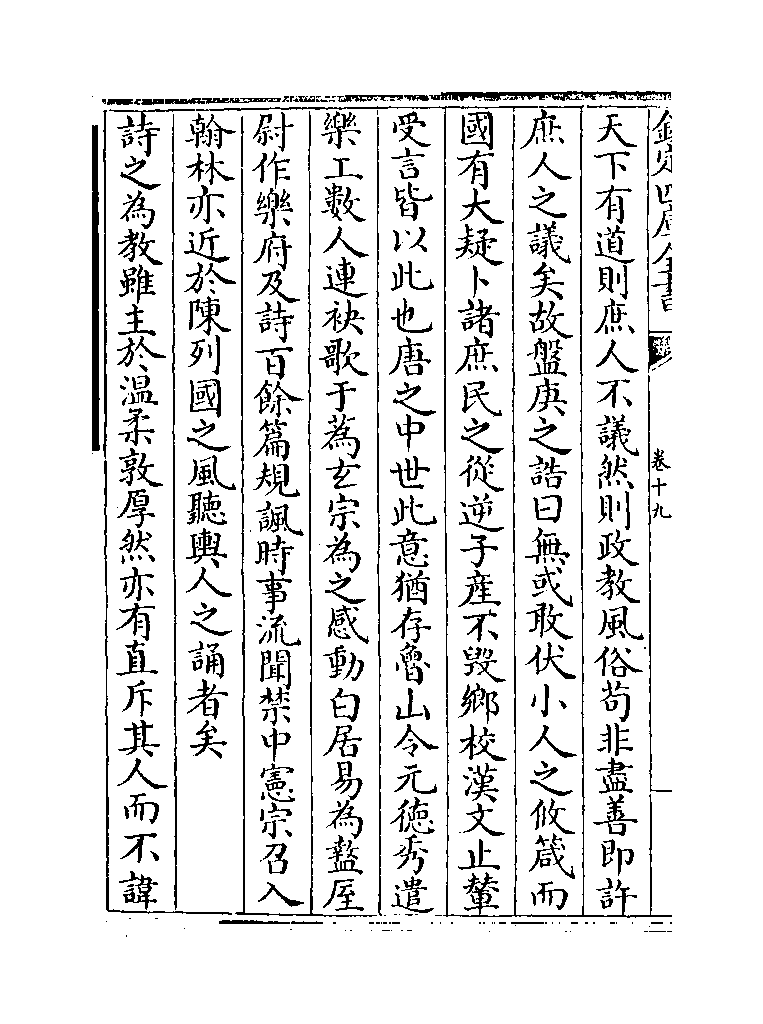 欽定四庫全書
卷十九
天下有道則庶人不議然則政教風俗苟非盡善即許
庶人之議矣故盤庚之誥曰無或敢伏小人之攸箴而
國有大疑卜諸庶民之從逆子產不毀鄉校漢文止輦
受言皆以此也唐之中世此意猶存魯山令元德秀遣
樂工數人連袂歌于蒍玄宗為之感動白居易為盩厔
尉作樂府及詩百餘篇規諷時事流聞禁中憲宗召入
翰林亦近於陳列國之風聽輿人之誦者矣
詩之為教雖主於温柔敦厚然亦有直斥其人而不諱